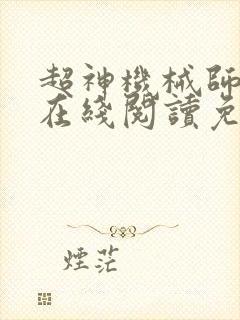 超神機械師
在綫閱讀免
煙茫